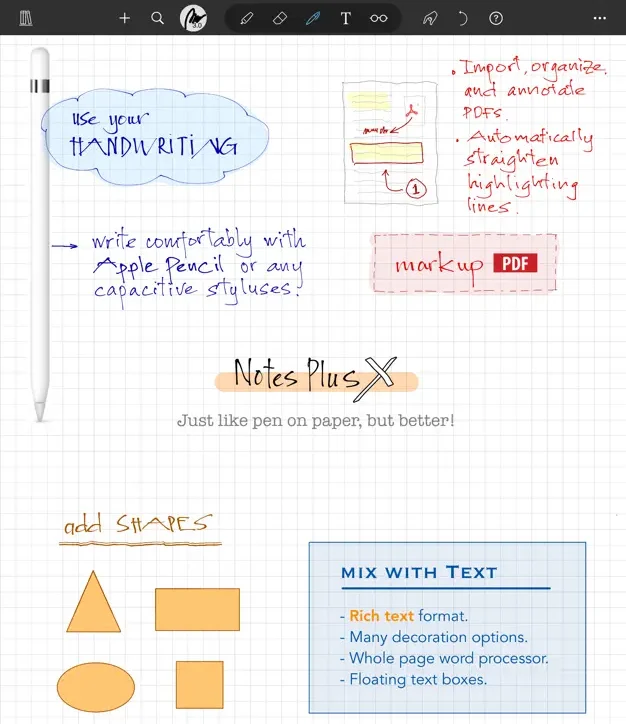 3.0
T
use your
HANDWRITING
• Import, organize
and annotate
PDFs.
• Automatically
straighten
highlighting
lines.
1
→ write comfortably with
Apple Pencil or any
capacitive styluses.
markup PDF
Notes Plus X
Just like pen on paper, but better!
add SHAPES
MIX WITH TEXT
- Rich text format.
- Many decoration options.
- Whole page word processor.
- Floating text boxes.